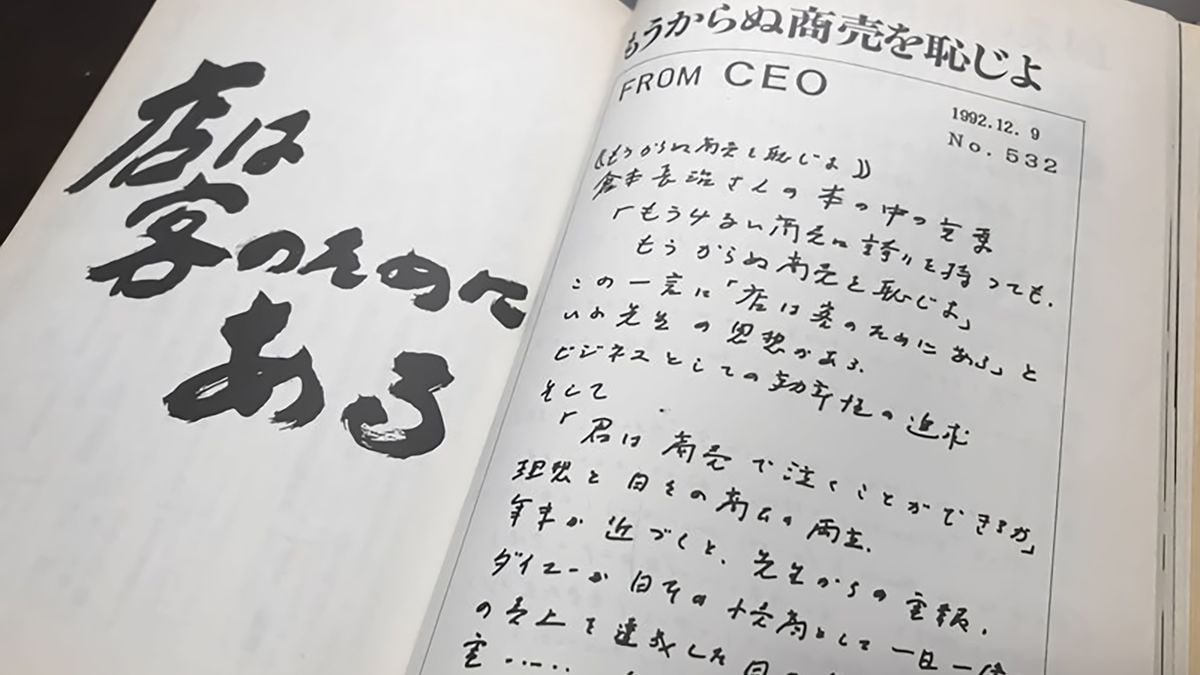 店は
客のために
ある
もうからぬ商売を恥じよ
FROM CEO
1992.12.9
No.532
《もうからぬ商売を恥じよ》
倉本長治さんの本の中の言葉
「もうけない商売に誇りを持っても、
もうからぬ商売を恥じよ」
この一言に「店は客のためにある」と
いう先生の思想がある。
ビジネスとしての効率性の追求
そして
「君は商売で泣くことができるか」
理想と日々の商いの両立。
年末が近づくと、先生からの電報。
ダイエーが日本の小売商として一日一億
の売上を達成した日
電……